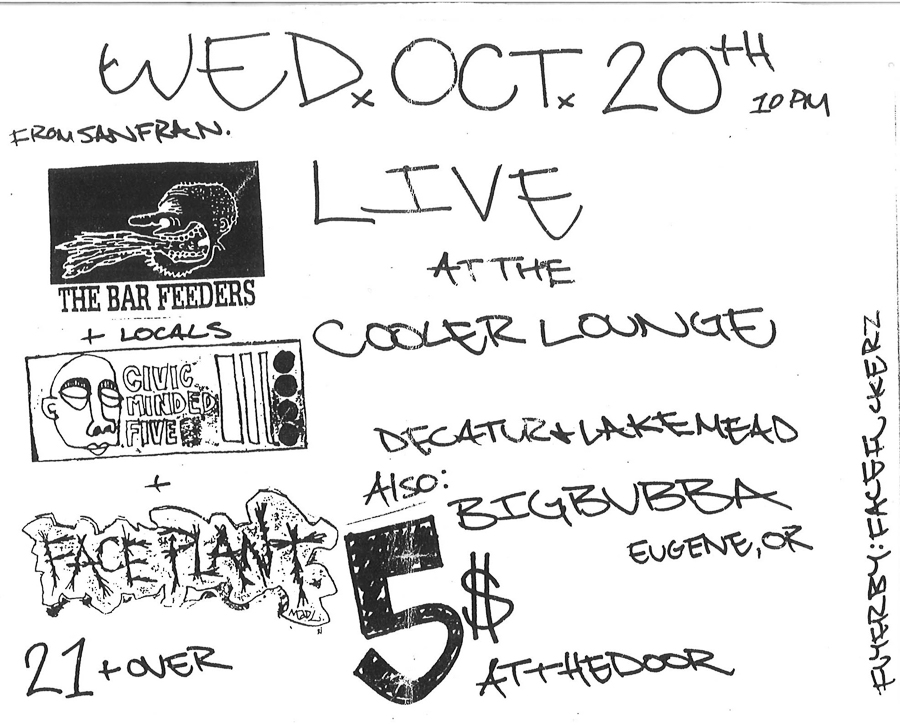 WED. OCT. 20TH
10 PM
FROM SAN FRAN.
THE BAR FEEDERS
+ LOCALS
CIVIC
MINDED
FIVE
+
FACE PLANT
MADL.
21 + OVER
LIVE
AT THE
COOLER LOUNGE
DECATUR + LAKE MEAD
ALSO:
BIG BUBBA
EUGENE, OR
5$
AT THE DOOR
FLYER BY: FACEFUCKERZ